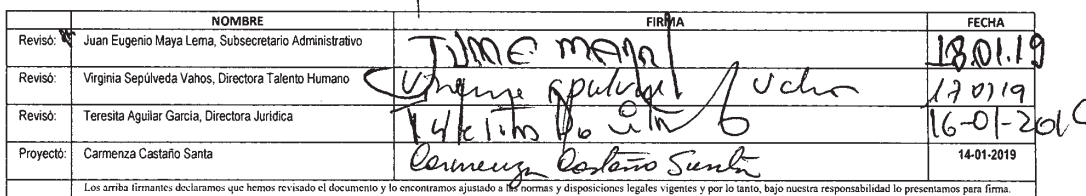 NOMBRE FIRMA FECHA
Revisó: Juan Eugenio Maya Lema, Subsecretario Administrativo 18.01.19
Revisó: Virginia Sepúlveda Vahos, Directora Talento Humano 170119
Revisó: Teresita Aguilar Garcia, Directora Jurídica 16-01-2019
Proyectó: Carmenza Castaño Santa Carmenza Castaño Santa 14-01-2019
Los arriba firmantes declaramos que hemos revisado el documento y lo encontramos ajustado a las normas y disposiciones legales vigentes y por lo tanto, bajo nuestra responsabilidad lo presentamos para firma.